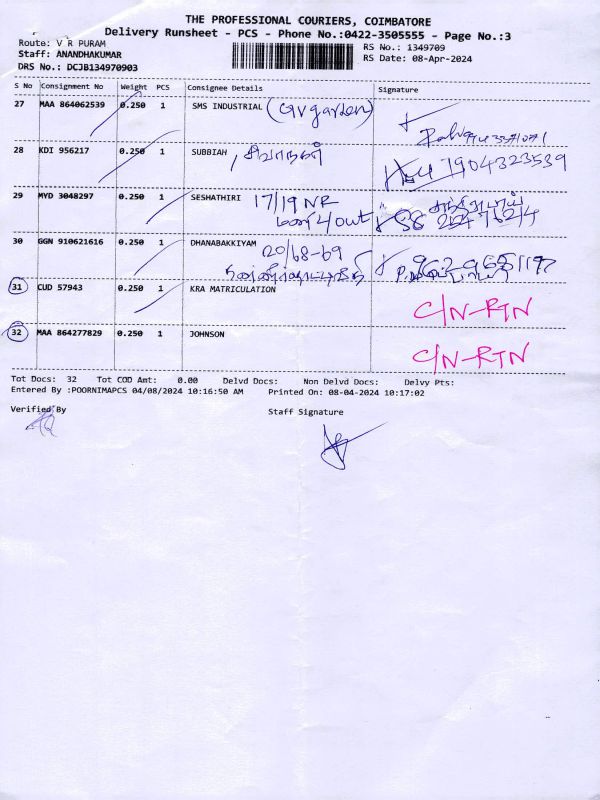 THE PROFESSIONAL COURIERS, COIMBATORE
Delivery Runsheet - PCS - Phone No.:0422-3505555 - Page No.:3
Route: V R PURAM
RS No.: 1349709
Staff: ANANDHAKUMAR
RS Date: 08-Apr-2024
DRS No.: DCJB134970903
S No Consignment No Weight PCS Consignee Details Signature
27 MAA 864062539 0.250 1 SMS INDUSTRIAL (GV garden)
28 KDI 956217 0.250 1 SUBBIAH, 7904323539
29 MVD 3048297 0.250 1 SESHATHIRI 17/19 NR
4 out
30 GGN 910621616 0.250 1 DHANABAKKIYAM 20/68-69
31 CUD 57943 0.250 1 KRA MATRICULATION C/N-RTN
32 MAA 864277829 0.250 1 JOHNSON C/N-RTN
Tot Docs: 32 Tot COD Amt: 0.00 Delvd Docs: Non Delvd Docs: Delvy Pts:
Entered By :POORNIMAPCS 04/08/2024 10:16:50 AM Printed On: 08-04-2024 10:17:02
Verified By Staff Signature